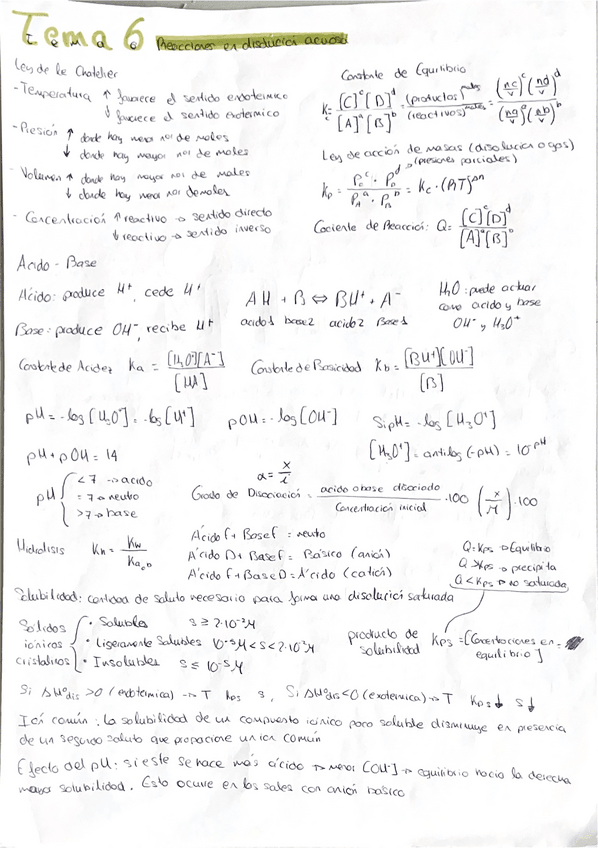 Tema 6 Reacciones en disolució acuosa
Ley de le Chatelier
- Temperatura ↑ favorece el sentido endotérmico
↓ favorece el sentido exotérmico
- Presión ↑ donde hay menor nº de moles
↓ donde hay mayor nº de moles
- Volumen ↑ donde hay mayor nº de moles
↓ donde hay menor nº de moles
- Concentración ↑ reactivo → sentido directo
↓ reactivo → sentido inverso
Constante de Equilibrio
Kc = [C]^c [D]^d / [A]^a [B]^b = (productos)^moles / (reactivos)^moles = (nc/v)^c (nd/v)^d / (na/v)^a (nb/v)^b
Ley de acción de masas (disolución o gas)
(presiones parciales)
Kp = Pc^c · PD^d / PA^a · PB^b = Kc · (RT)^Δn
Cociente de Reacción: Q = [C]^c [D]^d / [A]^a [B]^b
Ácido - Base
Ácido: produce H⁺, cede H⁺
Base: produce OH⁻, recibe H⁺
AH + B ⇔ BH⁺ + A⁻
acido1 base2 acido2 Base1
H₂O: puede actuar
como acido y base
OH⁻ y H₃O⁺
Constante de Acidez Ka = [H₃O⁺][A⁻] / [HA]
Constante de Basicidad Kb = [BH⁺][OH⁻] / [B]
pH = -log [H₃O⁺] = -log [H⁺] pOH = -log [OH⁻] Si pH = -log [H₃O⁺]
pH + pOH = 14 [H₃O⁺] = antilog (-pH) = 10^-pH
pH { <7 → acido
= 7 → neutro
>7 → base
α = x/i
Grado de Disociación = acido o base disociado / Concentración inicial · 100 (x/M) · 100
Hidrolisis Kh = Kw / Ka o b
Ácido F + Base F = neutro
Ácido D + Base F = Básico (anión)
Ácido F + Base D = Ácido (catión)
Q = Kps → Equilibrio
Q > Kps → precipita
Q < Kps → no saturada
Solubilidad: cantidad de soluto necesario para forma una disolució saturada
Solidos
iónicos
cristalinos
• Solubles s ≥ 2·10⁻²M
• Ligeramente Solubles 10⁻⁵M < s < 2·10⁻²M
• Insolubles s ≤ 10⁻⁵M
producto de
solubilidad
Kps = [Concentraciones en
equilibrio]
Si ΔHºdis >0 (endotérmica) → T Kps s, Si ΔHºdis <0 (exotermica) → T Kps↓ s↓
Ión común: la solubilidad de un compuesto iónico poco soluble disminuye en presencia
de un segundo soluto que propocione un ion común
Efecto del pH: si este se hace más ácido → menor [OH⁻] → equilibrio hacia la derecha
mayor solubilidad. Esto ocurre en las sales con anión basico